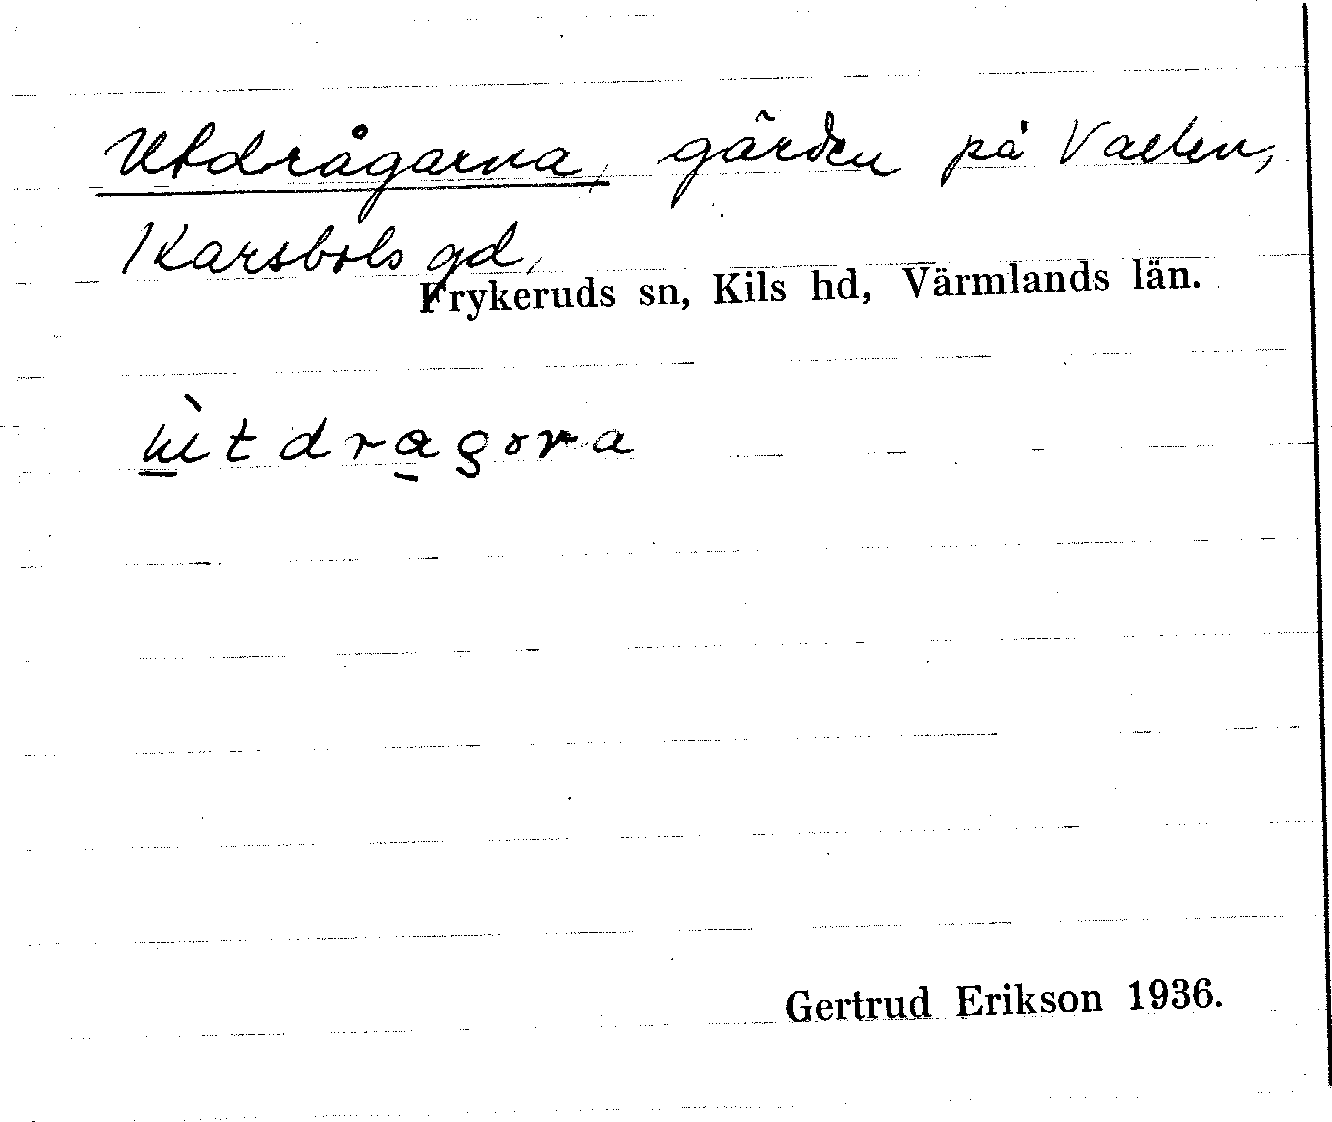 Utdrågarna, gärden på Vaelen,
Karsbols gd,
Frykeruds sn, Kils hd, Värmlands län.
ùtdragora
Gertrud Erikson 1936.